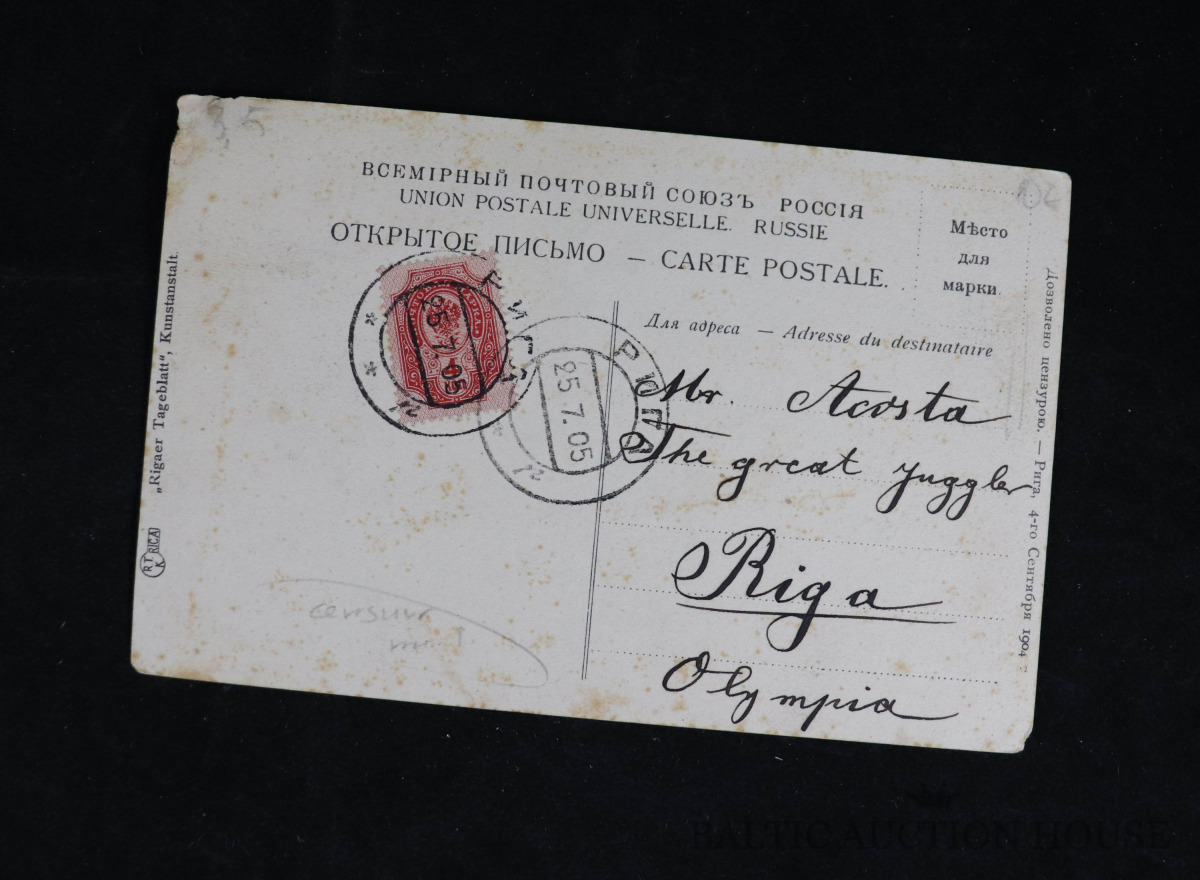 3,5
04
ВСЕМІРНЫЙ ПОЧТОВЫЙ СОЮЗЪ РОССІЯ
UNION POSTALE UNIVERSELLE. RUSSIE
ОТКРЫТОЕ ПИСЬМО — CARTE POSTALE.
Мѣсто
для
марки
Для адреса — Adresse du destinataire
РИГА
25.7.05
РИГА
25.7.05
Mr. Acosta
The great juggler
Riga
Olympia
„Rigaer Tageblatt“, Kunstanstalt.
RTK RICA
Дозволено цензурою. — Рига, 4-го Сентября 1904 г.
censur
BALTIC AUCTION HOUSE